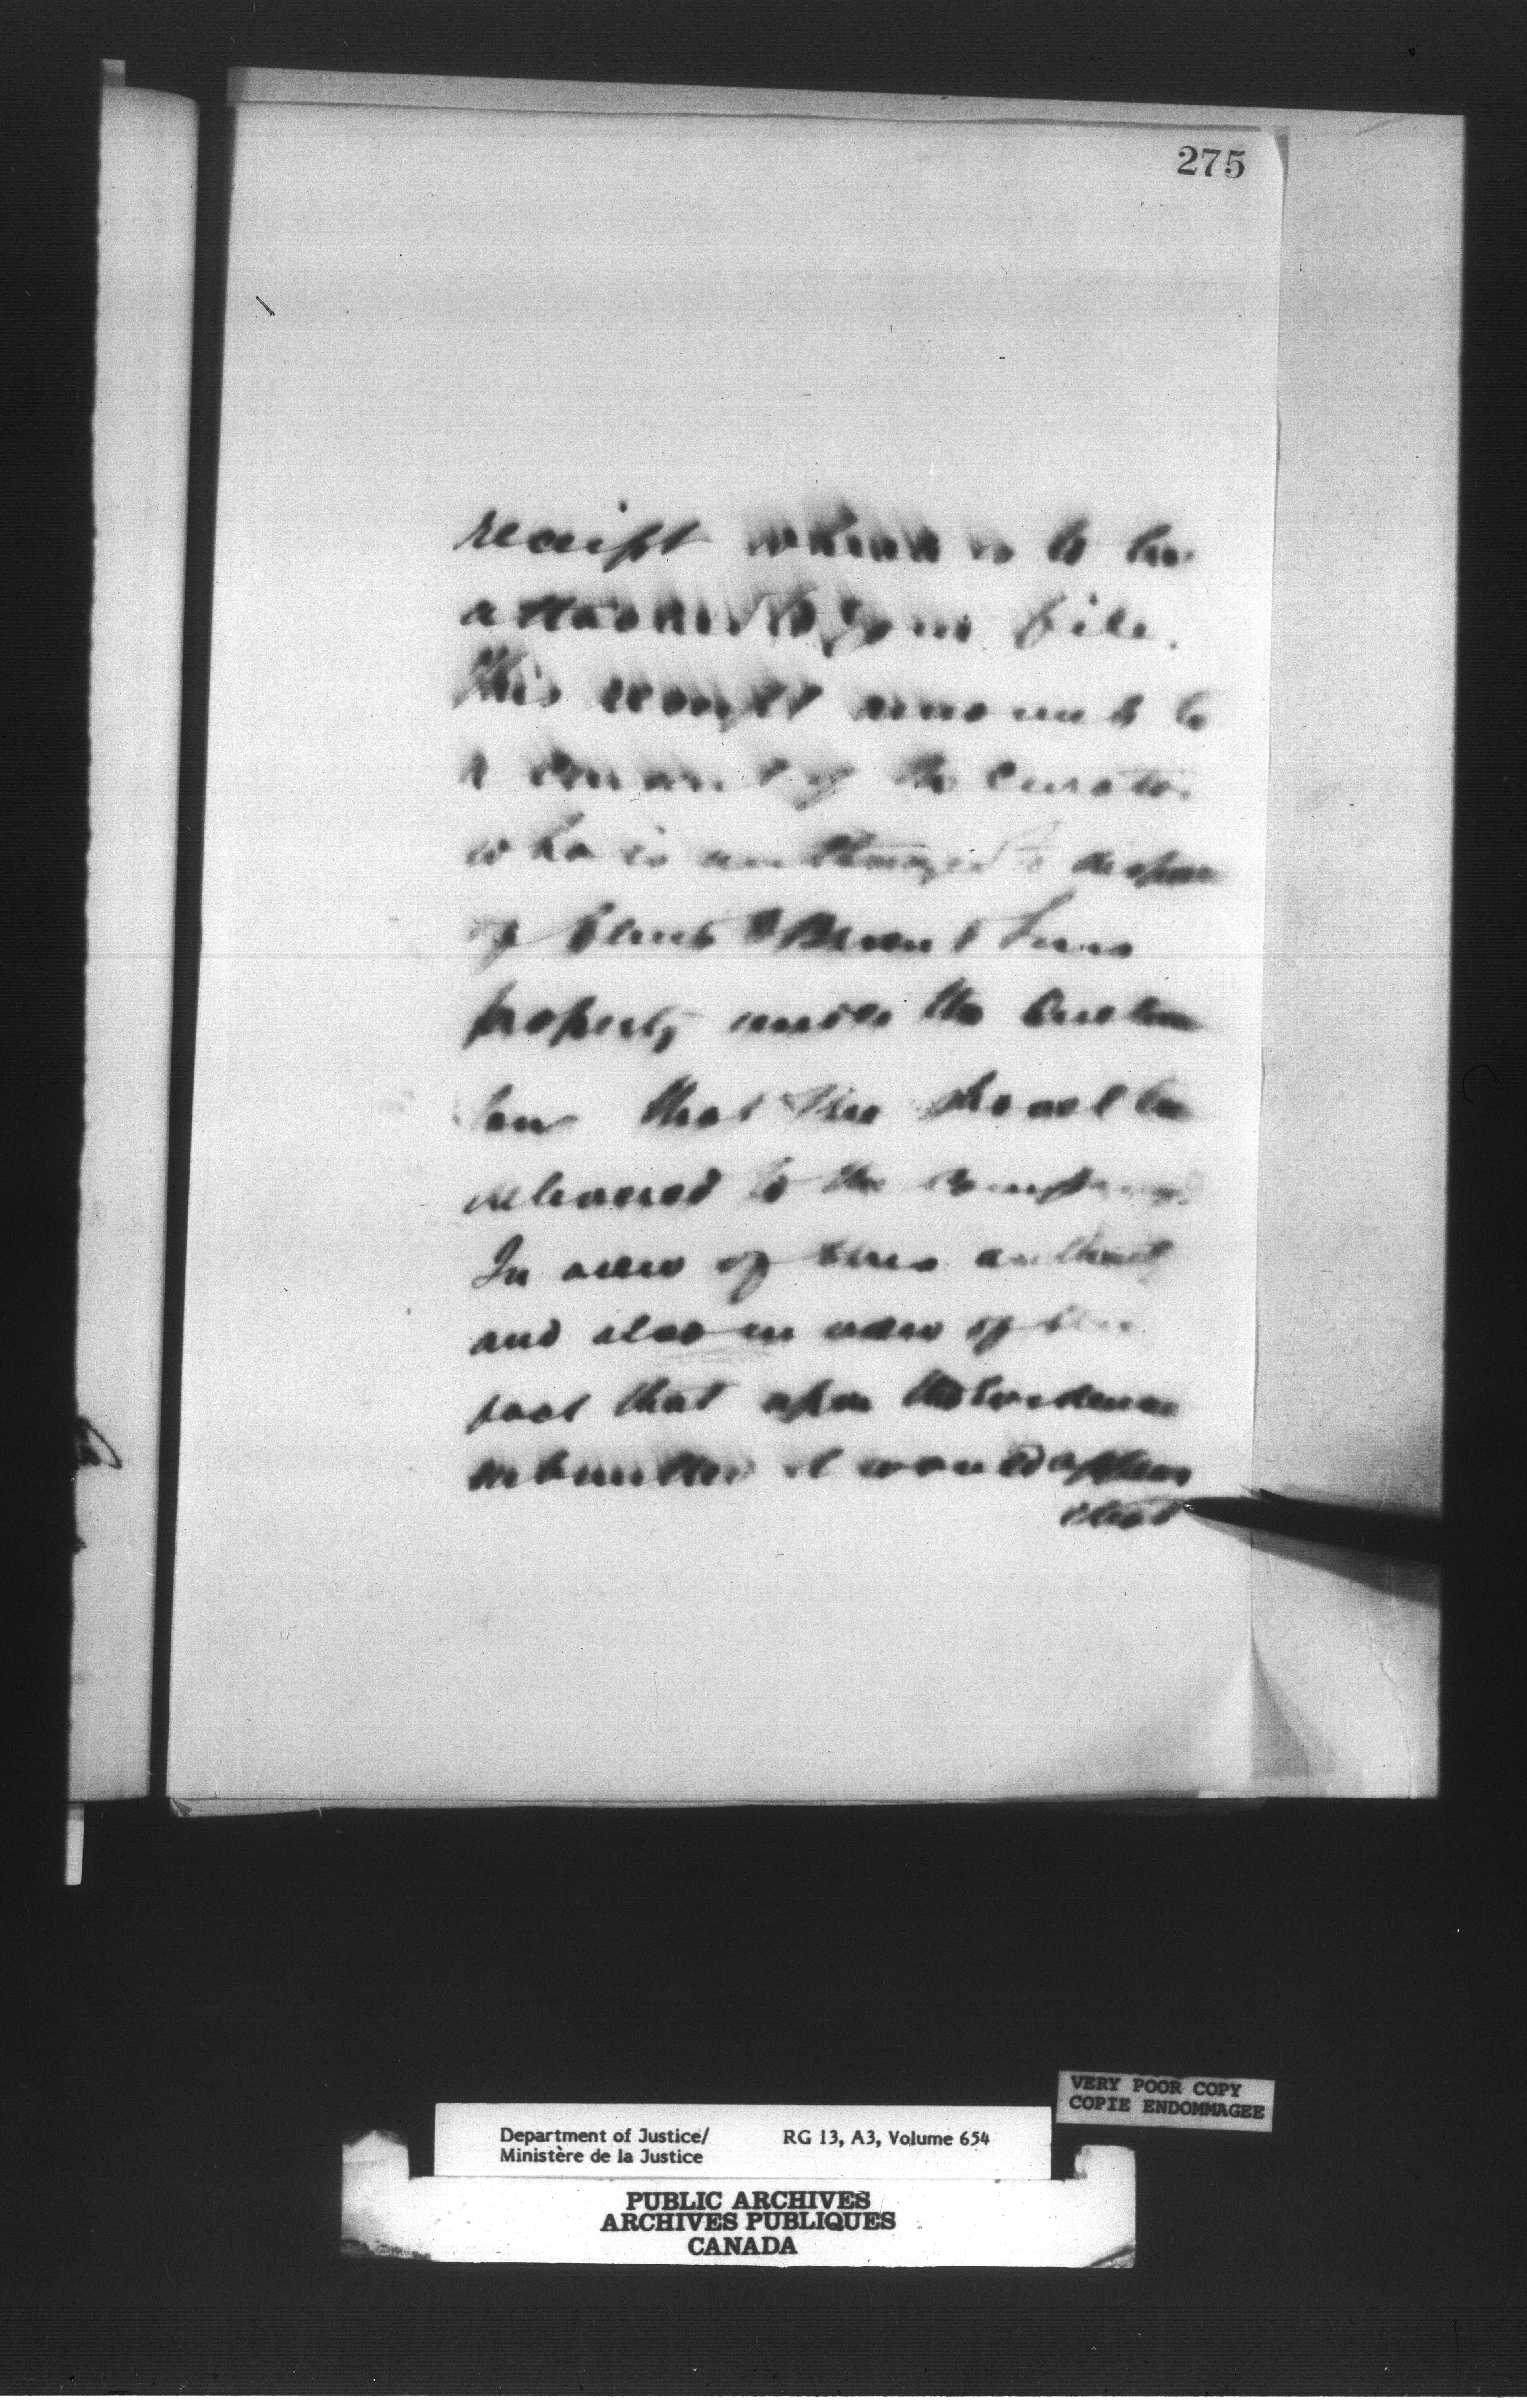 275
receipt which is to be
attached to your file.
This would amount to
a consent of the Curator
who is authorized to dispose
of
property under the Quebec
law that the should be
delivered to the company.
In view of this
and also in view of the
fact that upon the Evidence
submitted it would appear
that
VERY POOR COPY
COPIE ENDOMMAGEE
Department of Justice/ RG 13, A3, Volume 654
Ministère de la Justice
PUBLIC ARCHIVES
ARCHIVES PUBLIQUES
CANADA